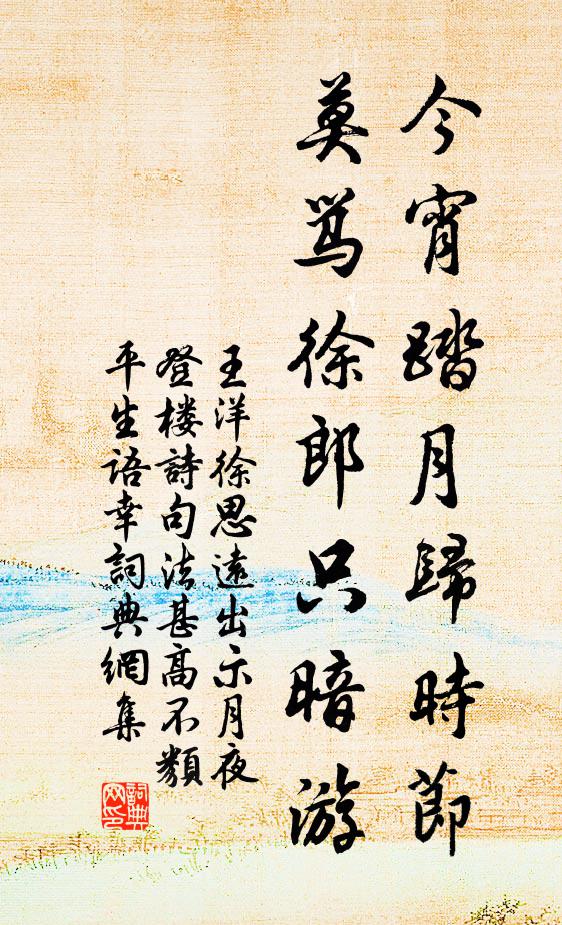 今宵踏月歸時節
莫骂徐郎只暗游
王洋徐思遠出示月夜
登楼詩句法甚高不類
平生語幸詞典網集
詞典網印